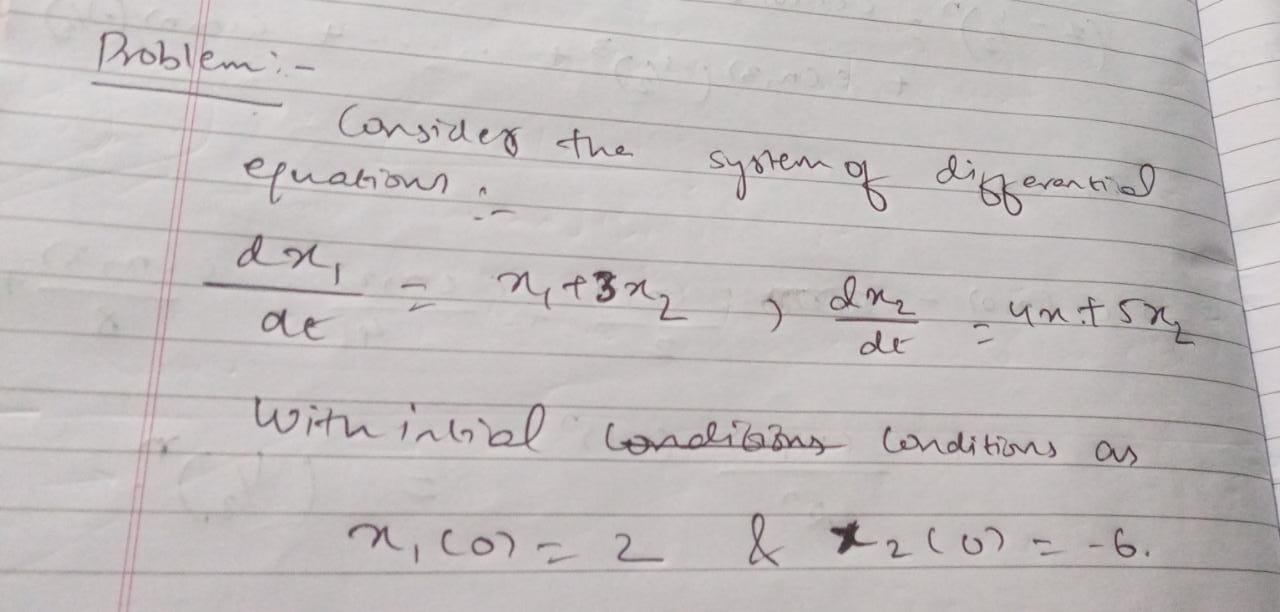 Problem :-
Consider the system of differential
equations :-
dx₁/dt = x₁ + 3x₂ , dx₂/dt = 4x₁ + 5x₂
With initial conditions conditions as
x₁(0) = 2 & x₂(0) = -6.